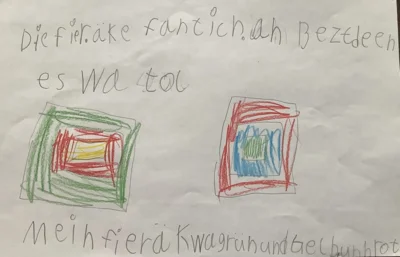 Die fier.äke fant ich.ah Beztdeen
es wa tol
Mein fierä Kwagrünundgelbunhrot